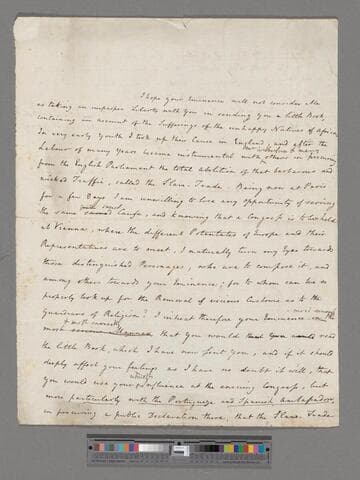 I hope your Eminence will not consider Me
as taking an improper Liberty with You in sending you a little Book,
containing an account of the Sufferings of the unhappy Natives of Africa.
In very early Youth I took up their Cause in England, and after the
Mr. Wilberforce & many
labour of many Years became instrumental with others in procuring
from the English Parliament the total abolition of that barbarous and
wicked Traffic, called the Slave-Trade. Being now at Paris
for a few Days I am unwilling to lose any Opportunity of serving
the same sacred Cause, and knowing that a Congress is to be held
at Vienna, where the different Potentates of Europe and their
Representatives are to meet, I naturally turn my Eyes towards
those distinguished Personages, who are to compose it, and
among others towards your Eminence; for to whom can we so
properly look up for the Removal of vicious Customs as to the
Guardians of Religion? I intreat therefore your Eminence in the
most & most earnestly
that you would read
the little Book, which I have now sent You, and if it should
deeply affect your feelings as I have no doubt it will, that
you would use your Influence at the ensuing Congress, but
more particularly with the Portuguese and Spanish Ambassadors,
in procuring a public Declaration there, that the Slave-Trade